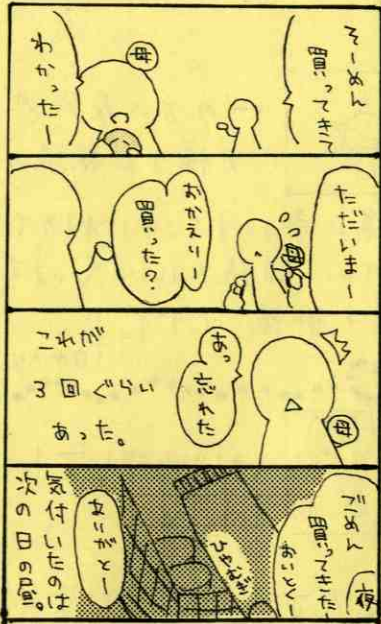 そーめん
買ってきて
母
わかったー
ただいまー
母
おかえりー
買った?
母
あっ
忘れた
これが
3回ぐらい
あった。
夜
ごめん
買ってきたー
おいとくー
ありがとー
気付いたのは
次の日の昼。